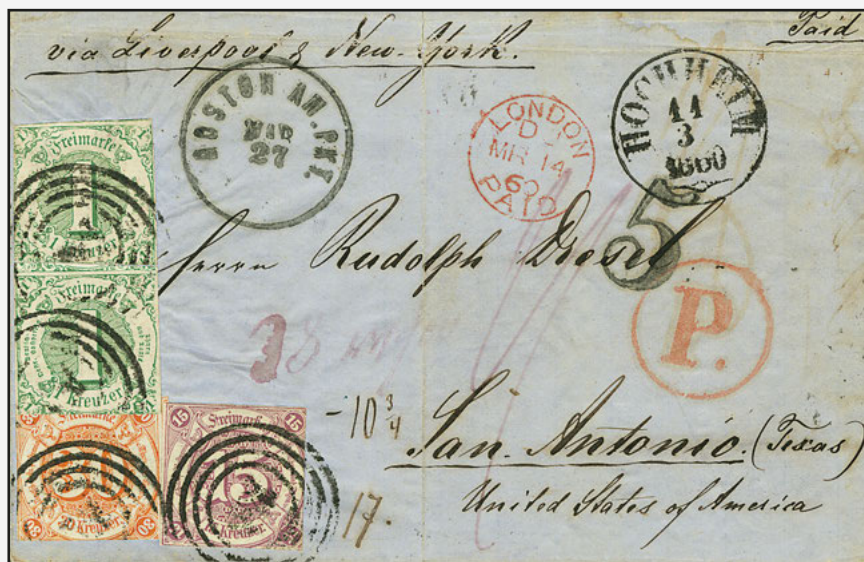 via Liverpool & New-York.
Paid
BOSTON AM. PKT.
MAR
27
LONDON
D
MR 14
60
PAID
HOCHHEIM
11
3
1860
5
Herrn Rudolph Dresel
P.
San Antonio. (Texas)
United States of America
-10 3/4
17.
Freimarke
1
Kreuzer
Freimarke
1
Kreuzer
Freimarke
30
30 Kreuzer
15 15
Freimarke
15
Kreuzer